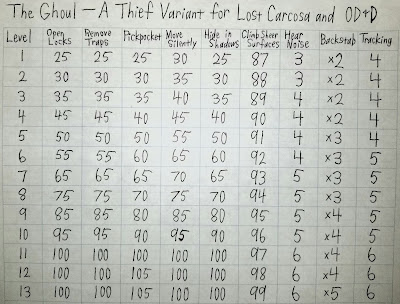 The Ghoul — A Thief Variant for Lost Carcosa and OD&D
Level Open Locks Remove Traps Pickpocket Move Silently Hide in Shadows Climb Sheer Surfaces Hear Noise Backstab Tracking
1 25 25 25 30 25 87 3 x2 4
2 30 30 30 35 30 88 3 x2 4
3 35 35 35 40 35 89 4 x2 4
4 45 45 40 45 40 90 4 x2 4
5 50 50 50 55 50 91 4 x3 4
6 55 55 60 65 60 92 4 x3 5
7 65 65 65 70 65 93 5 x3 5
8 75 75 70 75 70 94 5 x3 5
9 85 85 80 85 80 95 5 x4 5
10 95 95 90 95 90 96 5 x4 5
11 100 100 100 100 100 97 6 x4 6
12 100 100 105 100 100 98 6 x4 6
13 100 100 105 100 100 99 6 x5 6